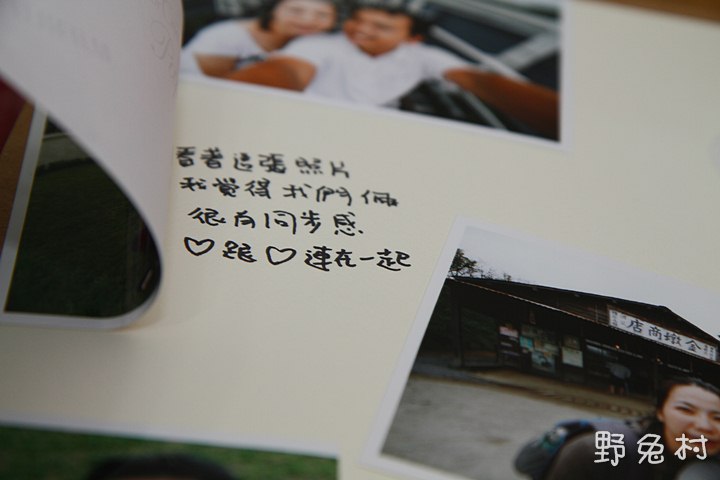 看著這張照片
我覺得我們倆
很有同步感
♡跟♡連在一起
店商墩金
野兔村